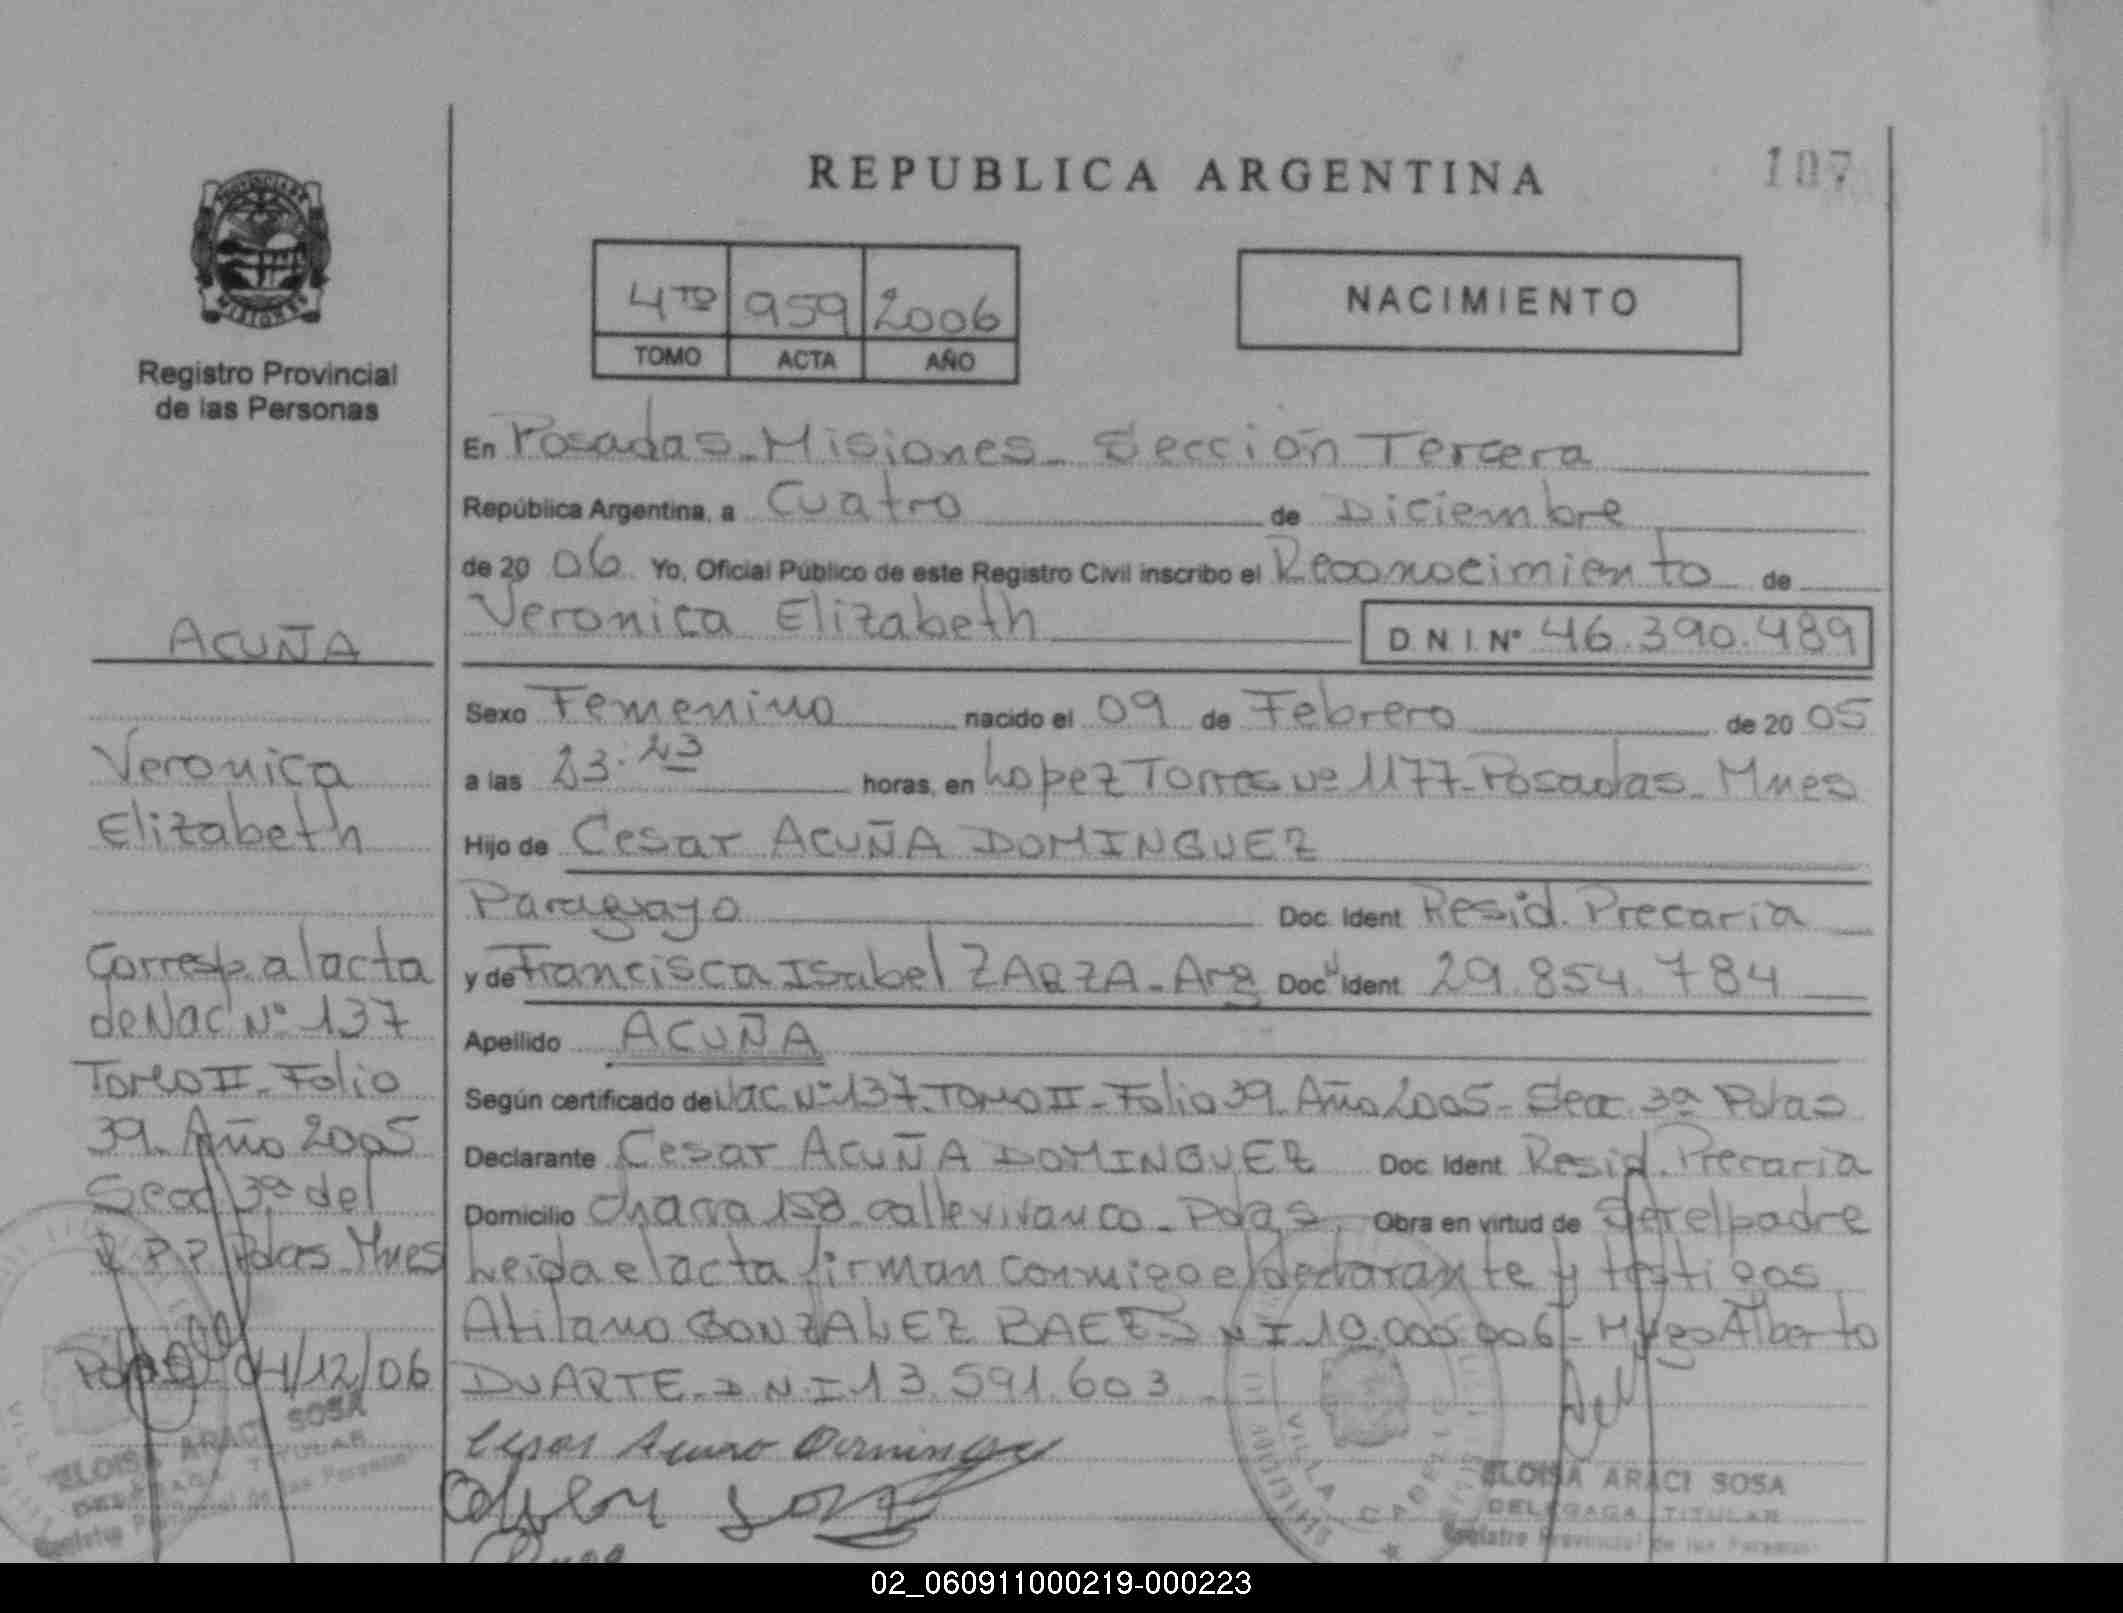 REPUBLICA ARGENTINA
107
PROVINCIA DE
MISIONES
Registro Provincial
de las Personas
4TO 959 2006
TOMO ACTA AÑO
NACIMIENTO
En Posadas - Misiones - Sección Tercera
República Argentina, a Cuatro de Diciembre
de 20 06 Yo, Oficial Público de este Registro Civil inscribo el Reconocimiento de
Veronica Elizabeth D.N.I. N° 46.390.489
Sexo Femenino nacido el 09 de Febrero de 20 05
a las 23.23 horas, en Lopez Torres Nº 1177 - Posadas - Mnes
Hijo de Cesar ACUÑA DOMINGUEZ
Paraguayo Doc. Ident Resid. Precaria
y de Francisca Isabel ZARZA - Arg Doc Ident 29.854.784
Apellido ACUÑA
Según certificado de Nac Nº 137 - Tomo II - Folio 39 - Año 2005 - Secc. 3ª Pdas
Declarante Cesar ACUÑA DOMINGUEZ Doc. Ident Resid. Precaria
Domicilio Chacra 158 - calle vivanco - Pdas Obra en virtud de Ser el padre
Leida el acta firman conmigo el declarante y testigos
Atilano GONZALEZ BAEZ 10.000.906 - Hugo Alberto
DUARTE - D.N.I 13.591.603
Cesar Acuña Domingu
ELOISA ARACI SOSA
DELEGAGA TITULAR
Registro Provincial de las Personas
VILLA CABELLO
ACUÑA
Veronica
Elizabeth
Corresp. al acta
de Nac Nº 137
Tomo II - Folio
39 - Año 2005
Secc 3ª del
R.P.P Pdas Mnes
04/12/06
ELOISA ARACI SOSA
DELEGAGA TITULAR
Registro Provincial de las Personas
02_060911000219-000223